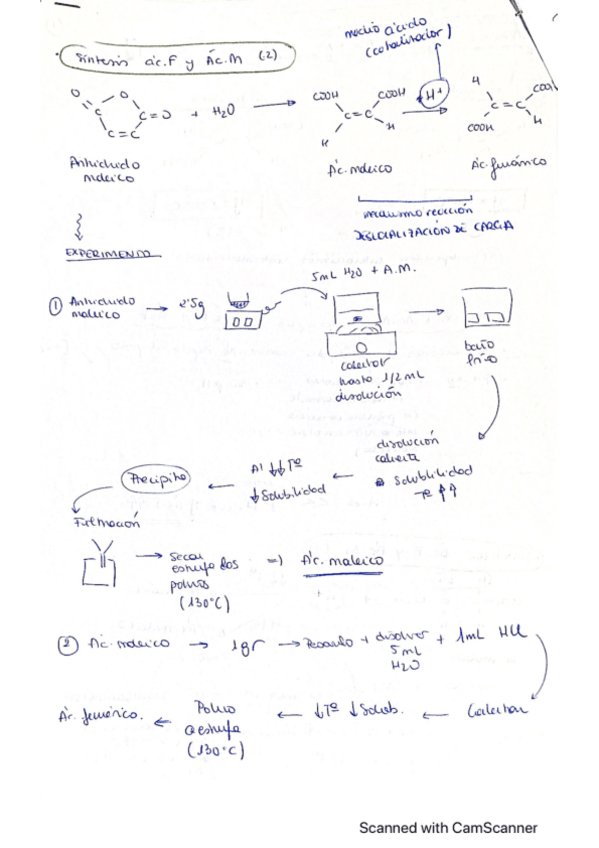 medio ácido
(catalizador)
Síntesis ác.F y Ác.M (2)
O O
C C=O + H2O
C=C
COOH COOH
C=C
H H
H+
H COOH
C=C
COOH H
Anhídrido
maleico
Ác. maleico
Ác. fumárico
mecanismo reacción
DESLOCALIZACIÓN DE CARGA
EXPERIMENTO
5mL H2O + A.M.
① Anhídrido
maleico
2'5g
calentar
hasta 1/2 mL
disolución
baño
frío
disolución
caliente
Solubilidad
Al ↓↓Tª
↓Solubilidad
Precipita
Filtración
Secar
estufa los
polvos
(130°C)
=) Ác. maleico
② Ác. maleico → 1gr → Pesarlo + disolver + 1mL HCl
5 mL
H2O
Calentar
↓Tª ↓Solub.
Polvo
a estufa
(130°C)
Ác. fumárico.
Scanned with CamScanner